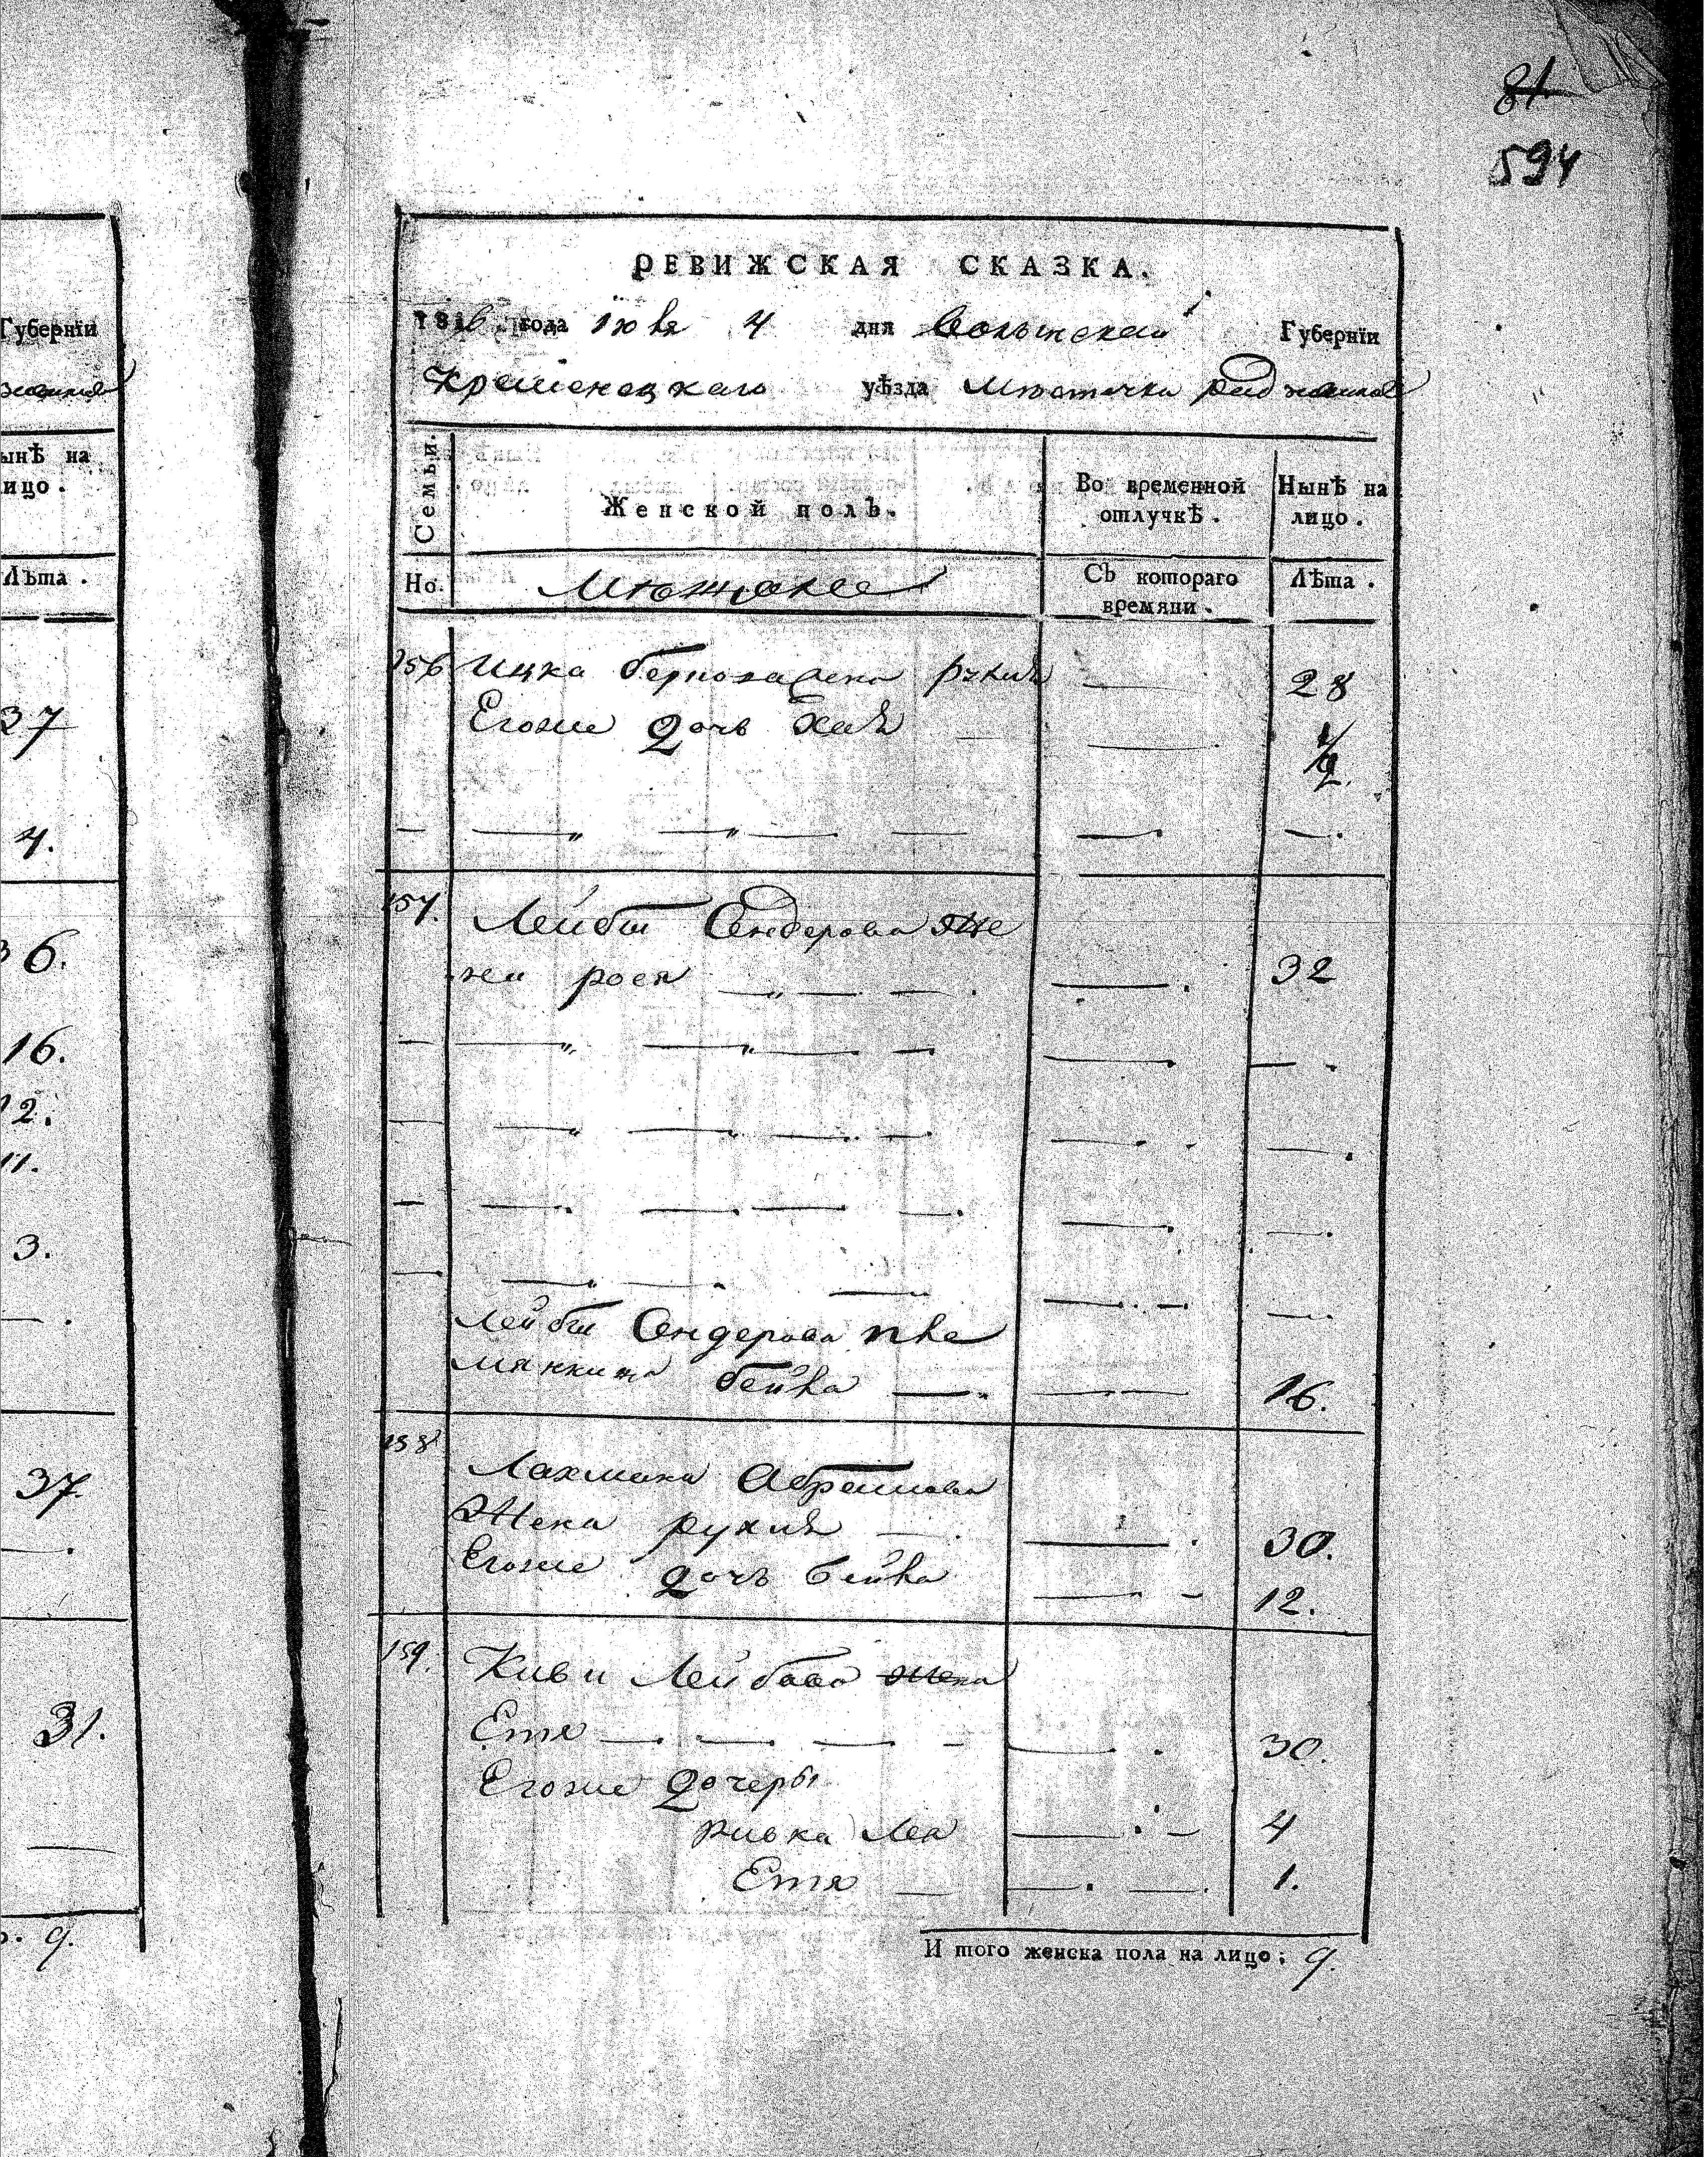 Губернїи
ынѣ на
ицо.
Лѣта.
37
4.
36.
16.
12.
11.
3.
37.
31.
9.
81.
594
РЕВИЖСКАЯ СКАЗКА.
1816 года Iюня 4 дня Волынской Губернїи
Кременецкаго уѣзда Мѣстечка
Семьи. Женской полъ. Во временной отлучкѣ. Нынѣ на лицо.
Но. Мѣщане Съ котораго времяни. Лѣта.
156 Ицка жена рухля — 28
Егоже дочь Хая — — 1/2.
157. Лейбы Сендерова же
на рося — 32
Лейбы Сендерова пле
мянница бейла — — 16.
158 Лахмана Абрамова
Жена рухля — — 30.
Егоже дочъ бейла — 12.
159. Киви Лейбова жена
Етя — — — — 30.
Егоже дочеры
ривка Леа — 4
Етя — — 1.
И того женска пола на лицо: 9.